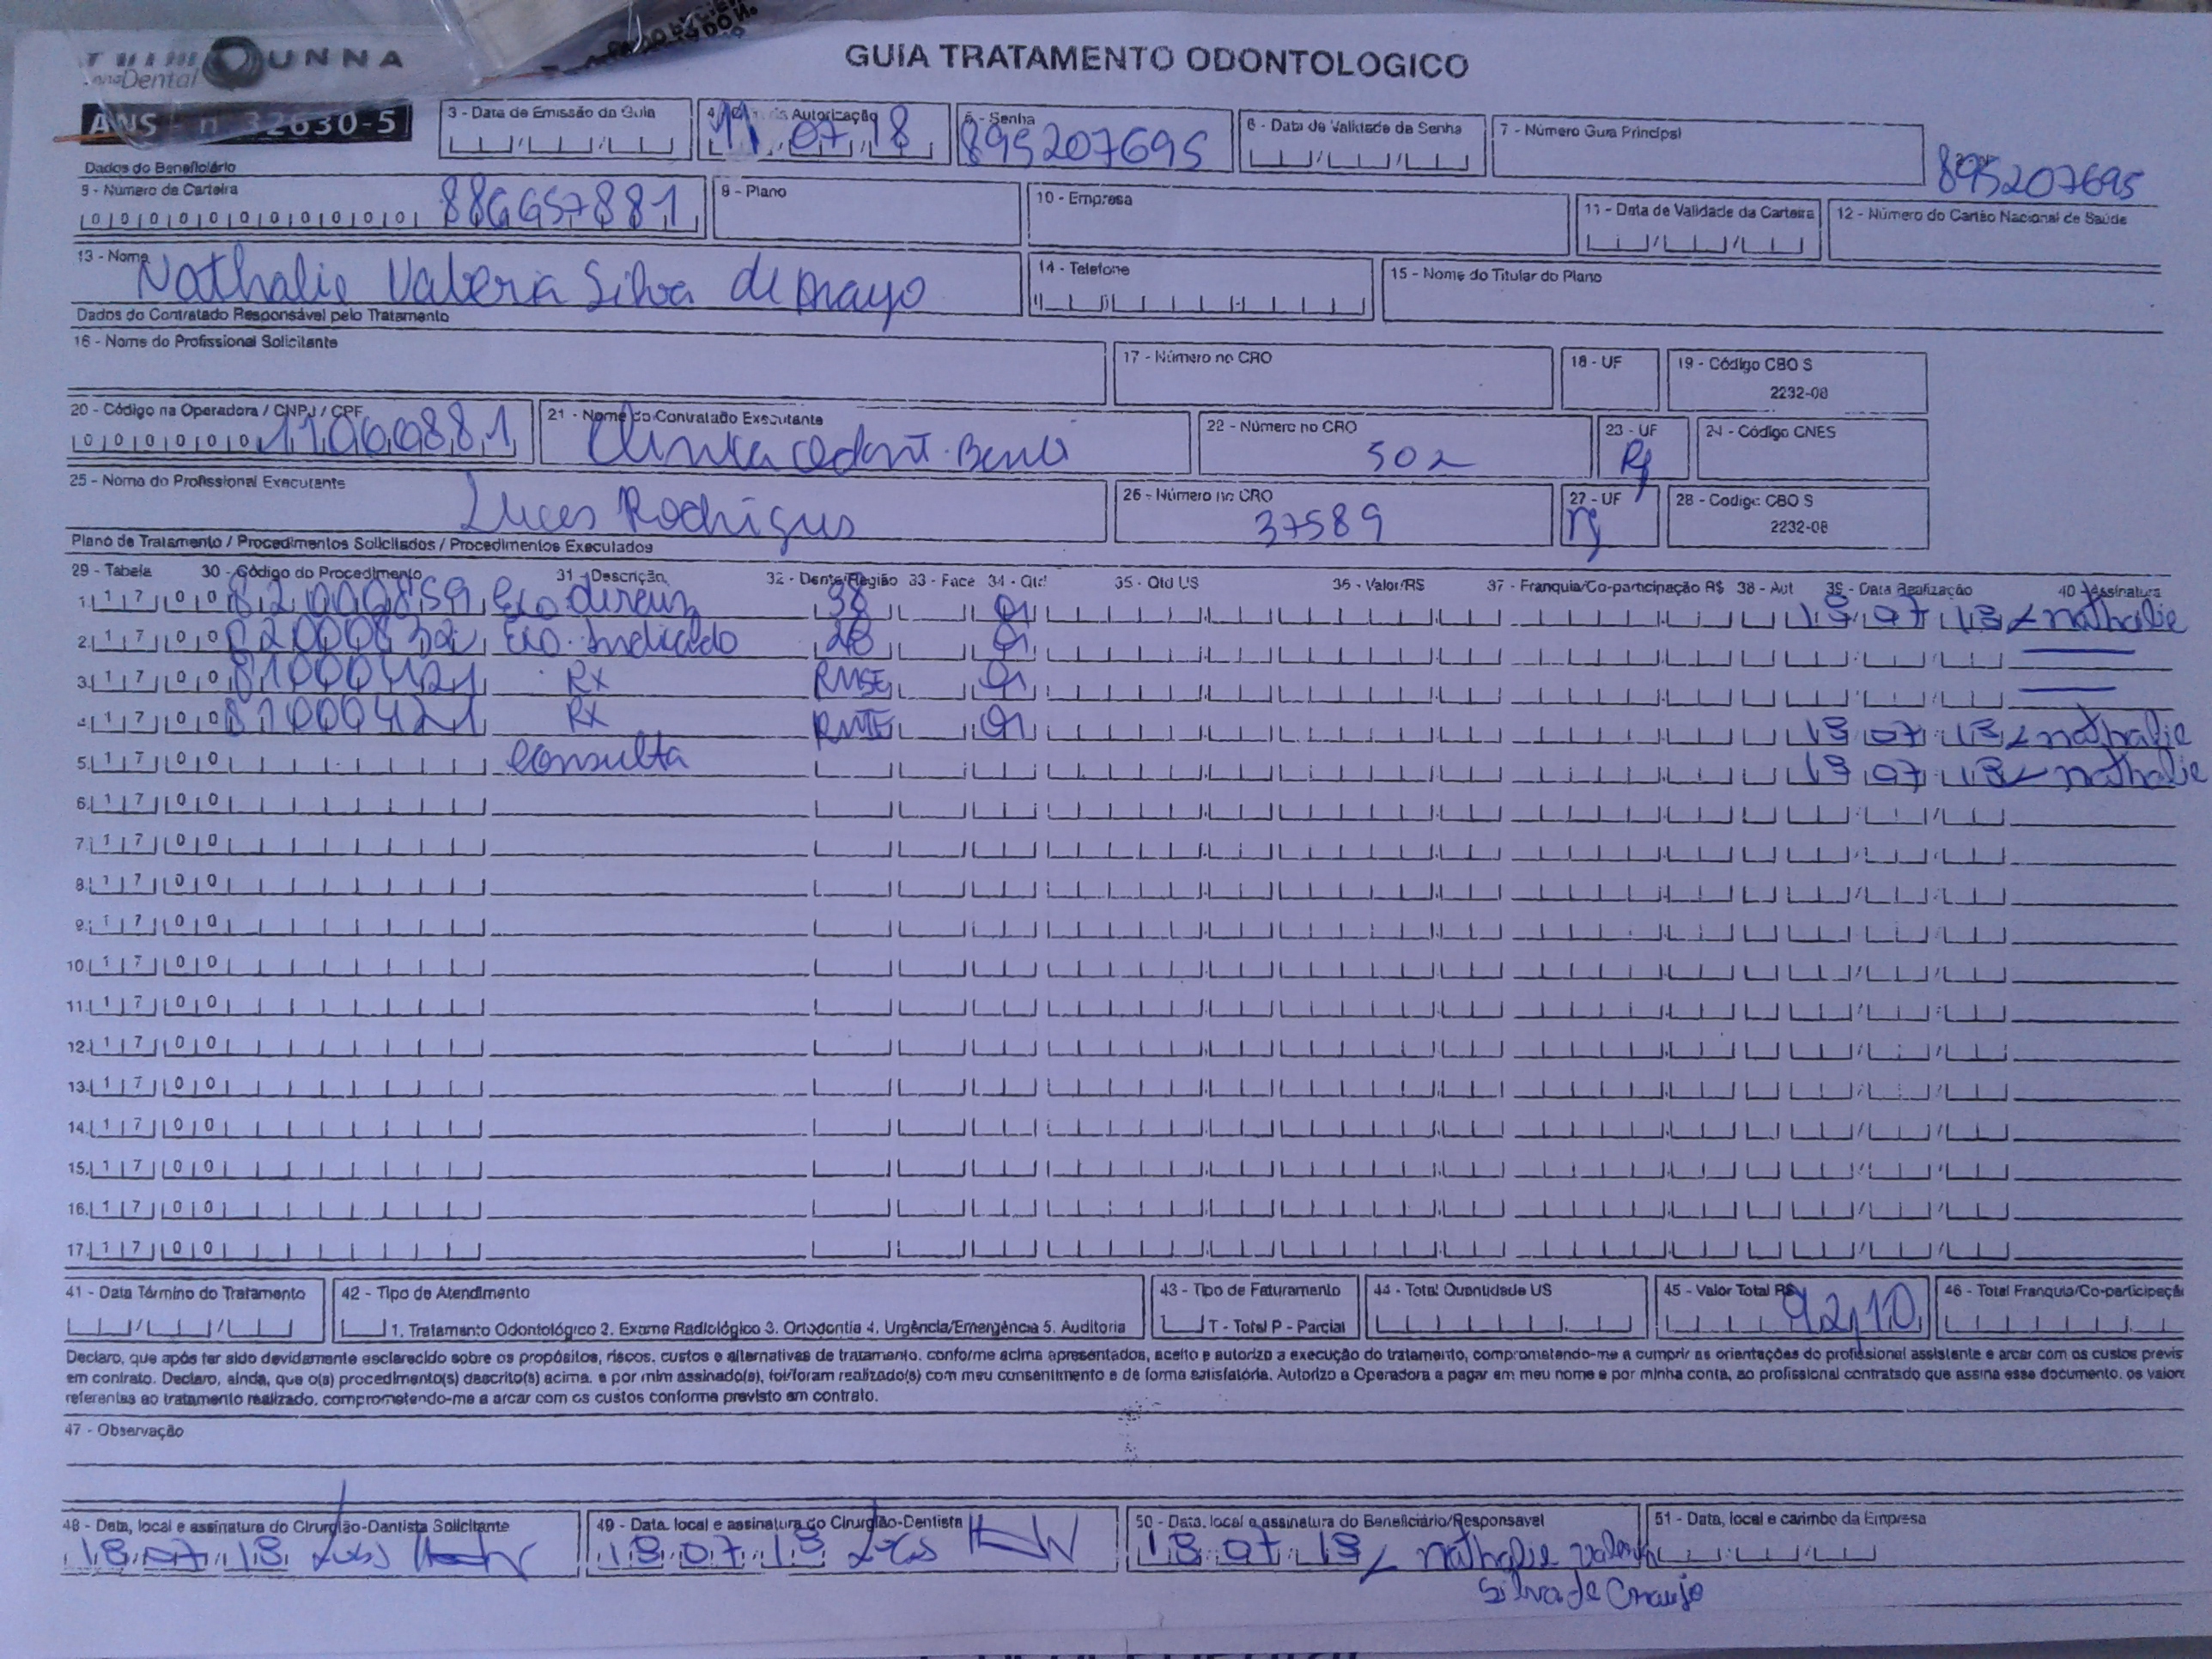 OUNNA
Dental
GUIA TRATAMENTO ODONTOLOGICO
ANS - n 32630-5
3 - Data de Emissão da Guia
Autorização
11 07 18
5 - Senha
895207695
6 - Data de Validade da Senha
7 - Número Guia Principal
895207695
Dados do Beneficiário
9 - Número da Carteira
0 0 0 0 0 0 0 0 0 0 0 886657881
9 - Plano
10 - Empresa
11 - Data de Validade da Carteira
12 - Número do Cartão Nacional de Saúde
13 - Nome
Nathalie Valeria Silva de Arayo
14 - Telefone
15 - Nome do Titular do Plano
Dados do Contratado Responsável pelo Tratamento
16 - Nome do Profissional Solicitante
17 - Número no CRO
18 - UF
19 - Código CBO S
2232-08
20 - Código na Operadora / CNPJ / CPF
0 0 0 0 0 0 11060881
21 - Nome do Contratado Executante
Clinica Odont.
22 - Número no CRO
502
23 - UF
Rj
24 - Código CNES
25 - Nome do Profissional Executante
Lucas Rodrigues
26 - Número no CRO
37589
27 - UF
Rj
28 - Código CBO S
2232-08
Plano de Tratamento / Procedimentos Solicitados / Procedimentos Executados
29 - Tabela 30 - Código do Procedimento 31 - Descrição 32 - Dente/Região 33 - Face 34 - Qtd 35 - Qtd US 36 - Valor/R$ 37 - Franquia/Co-participação R$ 38 - Aut 39 - Data Realização 40 - Assinatura
1. 1 7 0 0 82000859 Exo 38 01 13 07 18 nathalie
2. 1 7 0 0 82000832 Exo. Indicado 28 01
3. 1 7 0 0 81000421 Rx RMSE 01
4. 1 7 0 0 81000421 Rx RMIE 01 13 07 18 nathalie
5. 1 7 0 0 consulta 13 07 18 nathalie
6. 1 7 0 0
7. 1 7 0 0
8. 1 7 0 0
9. 1 7 0 0
10. 1 7 0 0
11. 1 7 0 0
12. 1 7 0 0
13. 1 7 0 0
14. 1 7 0 0
15. 1 7 0 0
16. 1 7 0 0
17. 1 7 0 0
41 - Data Término do Tratamento
42 - Tipo de Atendimento
1. Tratamento Odontológico 2. Exame Radiológico 3. Ortodontia 4. Urgência/Emergência 5. Auditoria
43 - Tipo de Faturamento
T - Total P - Parcial
44 - Total Quantidade US
45 - Valor Total R$
92,10
46 - Total Franquia/Co-participaçã
Declaro, que após ter sido devidamente esclarecido sobre os propósitos, riscos, custos e alternativas de tratamento, conforme acima apresentados, aceito e autorizo a execução do tratamento, comprometendo-me a cumprir as orientações do profissional assistente e arcar com os custos previs
em contrato. Declaro, ainda, que o(s) procedimento(s) descrito(s) acima, e por mim assinado(s), foi/foram realizado(s) com meu consentimento e de forma satisfatória. Autorizo a Operadora a pagar em meu nome e por minha conta, ao profissional contratado que assina esse documento, os valore
referentes ao tratamento realizado, comprometendo-me a arcar com os custos conforme previsto em contrato.
47 - Observação
48 - Data, local e assinatura do Cirurgião-Dentista Solicitante
13 07 18
49 - Data, local e assinatura do Cirurgião-Dentista
13 07 18
50 - Data, local e assinatura do Beneficiário/Responsável
13 07 18 nathalie Valeria
Silva de Araujo
51 - Data, local e carimbo da Empresa